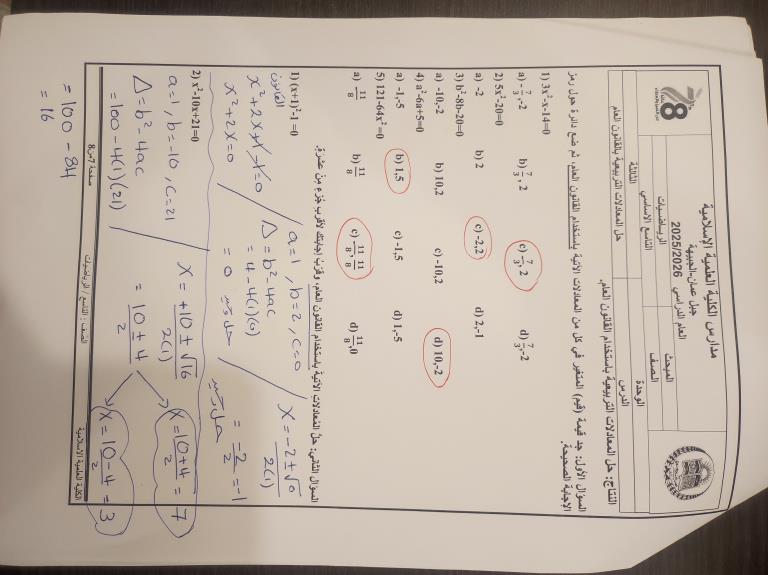 مدارس الكلية العلمية الإسلامية
جبل عمان-الجبيهة
العام الدراسي 2025/2026
المبحث
الرياضيات
الصف
التاسع الأساسي
الوحدة
الثالثة
الدرس
حل المعادلات التربيعية بالقانون العام
النتاج: حل المعادلات التربيعية باستخدام القانون العام.
السؤال الأول: جد قيمة (قيم) المتغير في كل من المعادلات الآتية باستخدام القانون العام، ثم ضع دائرة حول رمز
الإجابة الصحيحة.
1) 3x²-x-14=0
a) -7/3,-2 b) 7/3, 2 c) 7/3, 2 d) 7/3,-2
2) 5x²-20=0
a) -2 b) 2 c) -2,2 d) 2,-1
3) b²-8b-20=0
a) -10,-2 b) 10,2 c) -10,2 d) 10,-2
4) a²-6a+5=0
a) -1,-5 b) 1,5 c) -1,5 d) 1,-5
5) 121-64x²=0
a) 11/8 b) 11/8 c) 11/8, 11/8 d) 11/8,0
السؤال الثاني: حل المعادلات الآتية باستخدام القانون العام، وقرب إجابتك لأقرب جزء من عشرة.
1) (x+1)²-1=0
القانون
x²+2x+1-1=0
x²+2x=0
a=1, b=2, c=0
Δ=b²-4ac
=4-4(1)(0)
x=-2±√0
2(1)
=-2/2=-1
2) x²-10x+21=0
a=1, b=-10, c=21
Δ=b²-4ac
=100-4(1)(21)
=100-84
=16
x=+10±√16
2(1)
=10±4
2
x=10+4/2=7
x=10-4/2=3
صفحة 7 من 8
الصف: التاسع / الرياضيات
الكلية العلمية الاسلامية